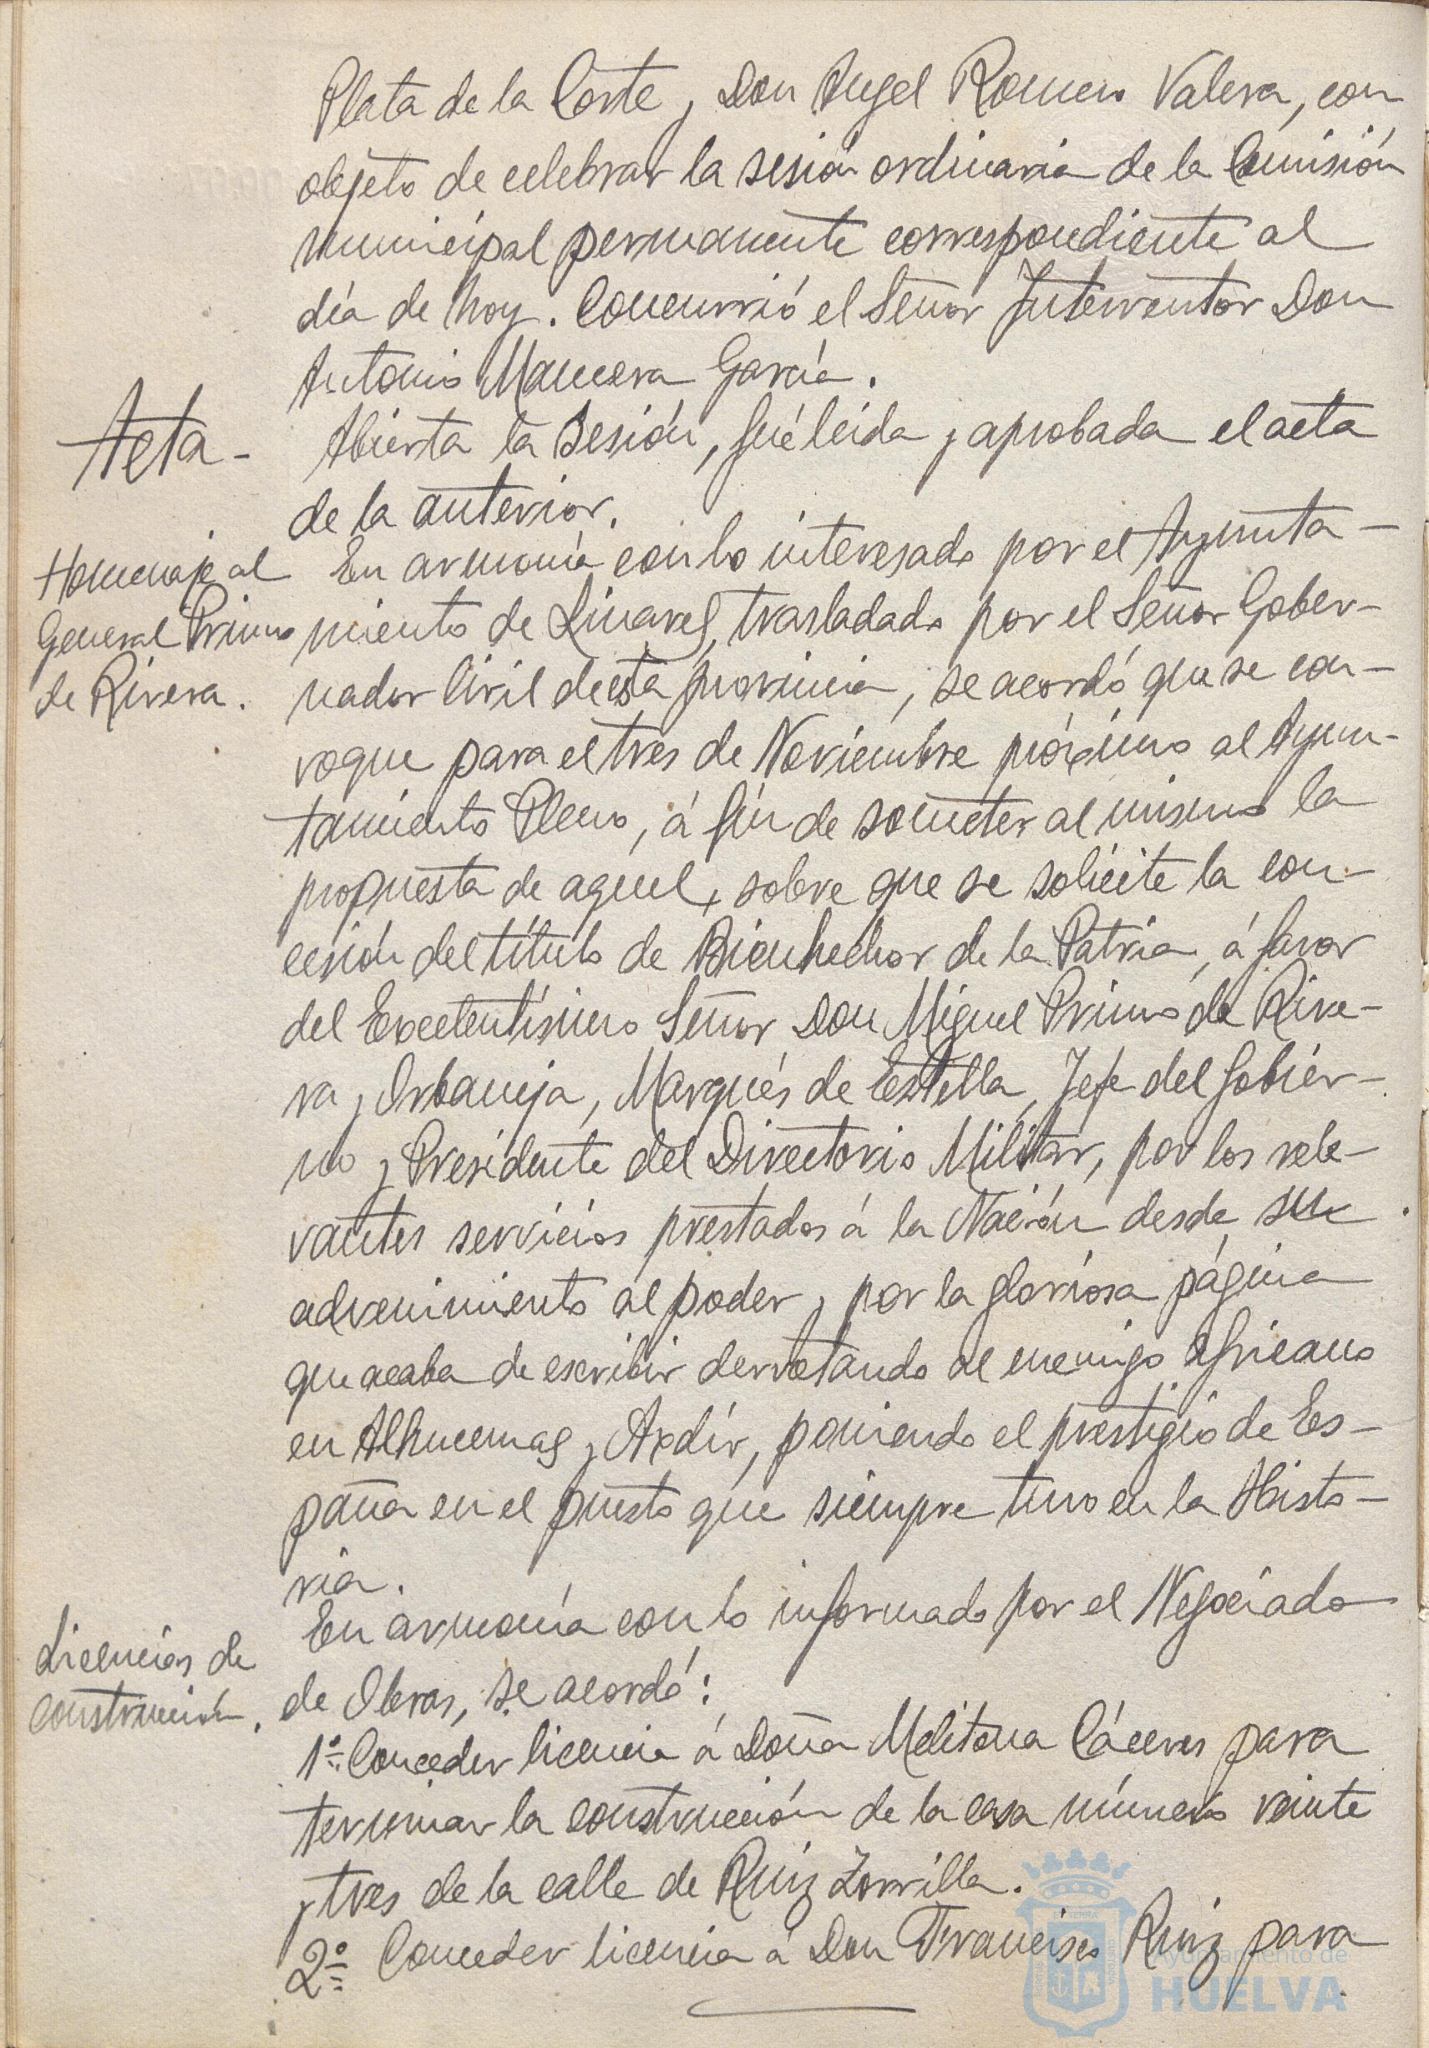 Plata de la Corte y Don Angel Romero Valera, con
objeto de celebrar la sesión ordinaria de la Comisión
municipal permanente correspondiente al
día de hoy. Concurrió el Señor Interventor Don
Antonio Mancera García.
Acta-
Abierta la Sesión, fué leida y aprobada el acta
de la anterior.
Homenaje al
General Primo
de Rivera.
En armonía con lo interesado por el Ayunta-
miento de Linares, trasladado por el Señor Gober-
nador Civil de esta provincia, se acordó que se con-
voque para el tres de Noviembre próximo al Ayun-
tamiento Pleno, á fin de someter al mismo la
propuesta de aquel, sobre que se solicite la con-
cesión del título de Bienhechor de la Patria, á favor
del Excelentísimo Señor Don Miguel Primo de Rive-
ra y Orbaneja, Marqués de Estella, Jefe del Gobier-
no y Presidente del Directorio Militar, por los rele-
vantes servicios prestados á la Nación desde su
advenimiento al poder y por la gloriosa página
que acaba de escribir derrotando al enemigo africano
en Alhucemas y Axdir, poniendo el prestigio de Es-
paña en el puesto que siempre tuvo en la Histo-
ria.
Licencias de
construcción.
En armonía con lo informado por el Negociado
de Obras, se acordó:
1º= Conceder licencia á Doña Melitona Cáceres para
terminar la construcción de la casa número veinte
y tres de la calle de Ruiz Zorrilla.
2º= Conceder licencia á Don Francisco Ruiz para
Ayuntamiento de
HUELVA